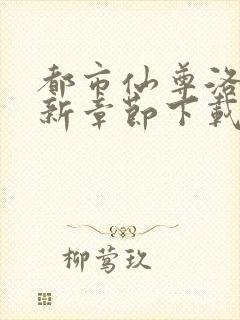 都市仙尊洛
新章节下载
柳莺玖